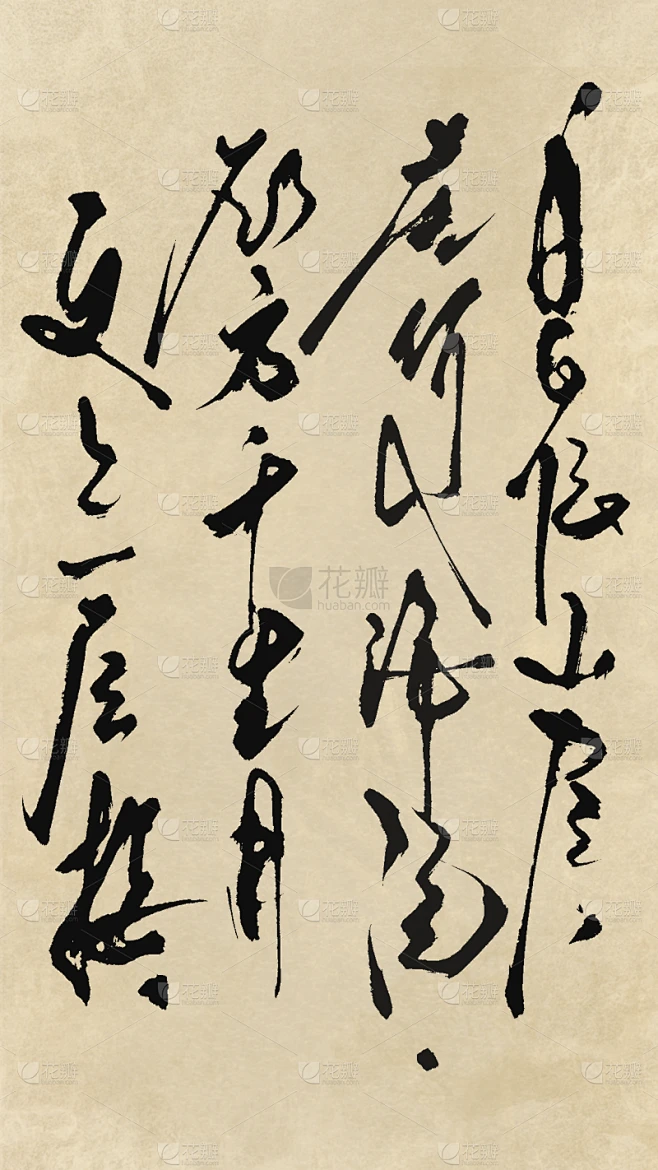 白日依山尽
黄河入海流
欲穷千里目
更上一层楼
花瓣
huaban.com